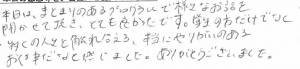 本日は、まとまりのあるプログラムで様々なお話を
聞かせて頂き、とても良かったです。質のおだけでなく
多くの人々と触れ合える、本当にやりがいのある
お仕事だなと感じました。ありがとうございました。